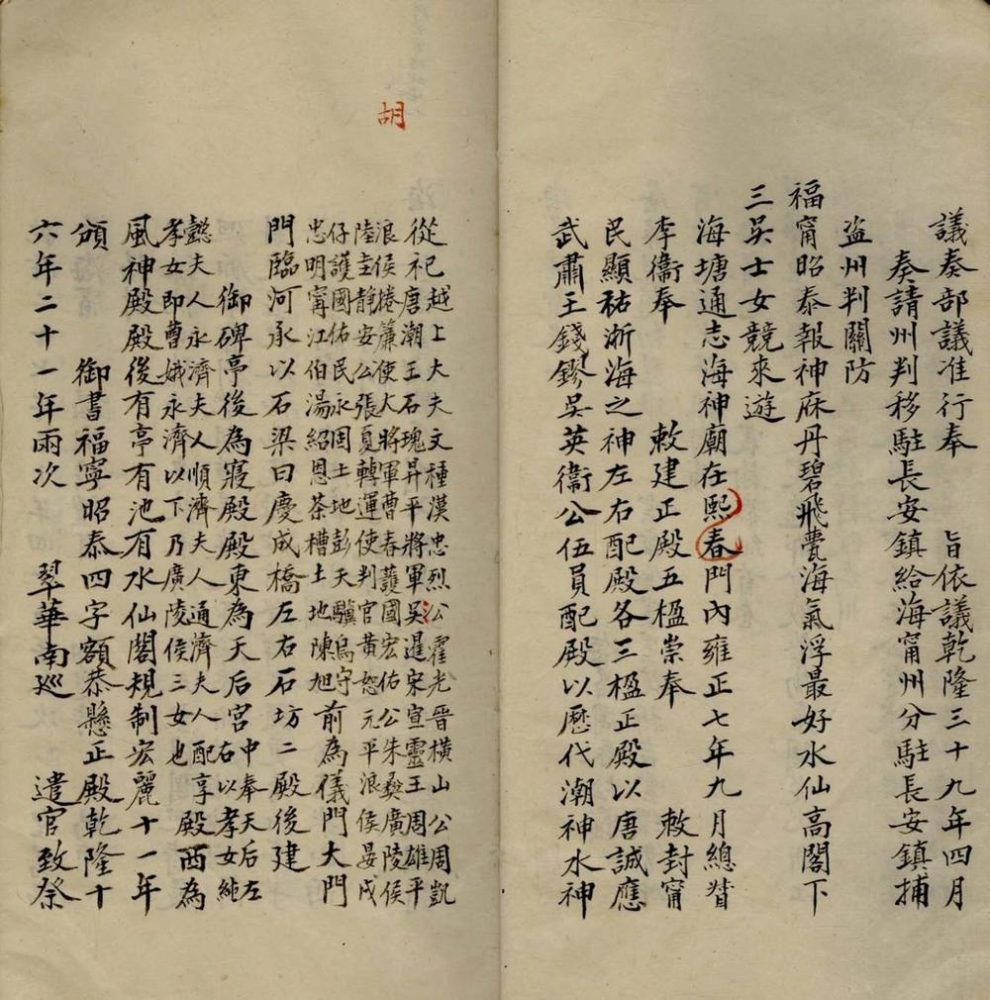 議奏部議准行奉 旨依議乾隆三十九年四月
奏請州判移駐長安鎮給海甯州分駐長安鎮捕
盗州判關防
福甯昭泰報神庥丹碧飛甍海氣浮最好水仙高閣下
三吳士女競來遊
海塘通志海神廟在熙春門內雍正七年九月總督
李衞奉 敕建正殿五楹崇奉 敕封甯
民顯祐浙海之神左右配殿各三楹正殿以唐誠應
武肅王錢鏐吳英衞公伍員配殿以歷代潮神水神
胡
從祀越上大夫文種漢忠烈公霍光晉橫山公周凱
唐潮王石瑰昇平將軍吳暹宋宣靈王周雄平
浪侯捲簾使大將軍曹春護國宏佑公朱彝廣陵侯
陸圭靜安公張夏轉運使判官黃恕元平浪侯晏戍
仔護國佑民永固土地彭天驥烏守
忠明甯江伯湯紹恩茶槽土地陳旭前為儀門大門
門臨河承以石梁曰慶成橋左右石坊二殿後建
御碑亭後為寢殿殿東為天后宮中奉天后左
右以孝女純
懿夫人永濟夫人順濟夫人通濟夫人配享
孝女即曹娥永濟以下乃廣陵侯三女也殿西為
風神殿殿後有亭有池有水仙閣規制宏麗十一年
頒 御書福寧昭泰四字額恭懸正殿乾隆十
六年二十一年兩次 翠華南巡 遣官致祭